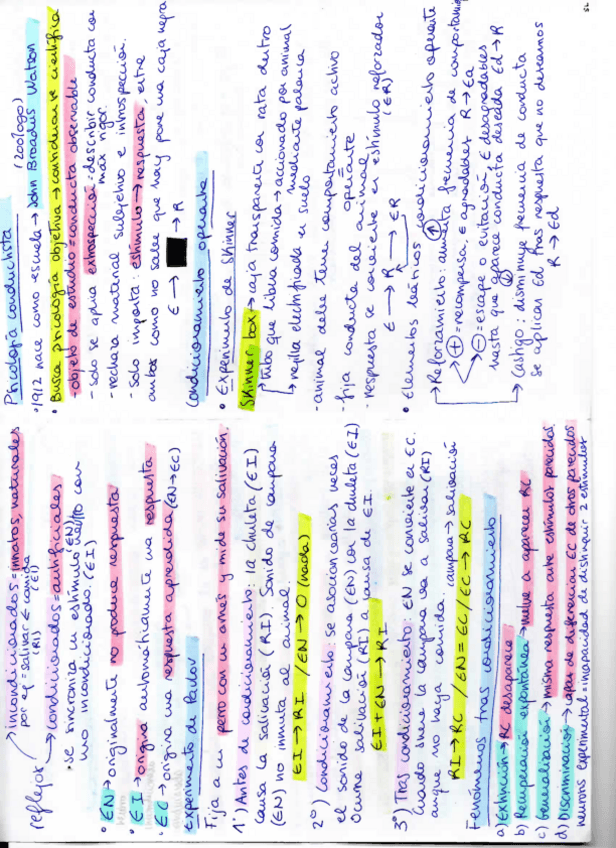 reflejos → incondicionados = innatos, naturales
por eg = salivar E. comida
(RI) (EI)
→ condicionados = artificiales
• se sincroniza un estímulo (EN) con
uno incondicionado. (EI)
• EN → originalmente no produce respuesta
• EI → origina automáticamente una respuesta
• EC → origina una respuesta aprendida (EN → EC)
Experimento de Pavlov
Fija a un perro con un arnés y mide su salivación.
1º) Antes de condicionamiento: la chuleta (EI)
causa la salivación (RI). Sonido de campana
(EN) no inmuta al animal.
EI → RI / EN → O (nada)
2º) Condicionamiento: se asocian varias veces
el sonido de la campana (EN) con la chuleta (EI)
Ocurre salivación (RI) a causa de EI
EI + EN → RI
3º) Tras condicionamiento: EN se convierte en EC.
Cuando suene la campana va a salivar (RI)
aunque no haya comida. campana → salivación
RI → RC / EN = EC / EC → RC
Fenómenos tras condicionamiento
a) Extinción → RC desaparece
b) Recuperación espontánea → vuelve a aparecer RC
c) Generalización → misma respuesta ante estímulos parecidos
d) Discriminación → capaz de diferenciar EC de otros parecidos
neurosis experimental = incapacidad de distinguir 2 estímulos
Psicología conductista
(zoólogo)
• 1912 nace como escuela → John Broadus Watson
• Busca psicología objetiva → considerarse científica
- objeto de estudio = conducta observable
- solo se aplica extrospección: describir conducta con
max rigor.
- rechaza material subjetivo e introspección.
- solo importa estímulo → respuesta, entre
ambos como no sabe que hay pone una caja negra
E → ■ → R
Condicionamiento operante
• Experimento de Skinner
Skinner box → caja transparente con rata dentro
→ tubo que libera comida → accionado por animal
mediante palanca
→ rejilla electrificada en suelo
- animal debe tener comportamiento activo
= operante
- fija conducta del animal
- respuesta se convierte en estímulo reforzador
(ER)
E → R → ER
• Elementos básicos condicionamiento operante
→ Reforzamiento: aumenta frecuencia de comportamiento
+ = recompensa. E agradables R → Ea
- = escape o evitación E desagradables
hasta que aparece conducta deseada Ed → R
→ Castigo: disminuye frecuencia de conducta
se aplican Ed tras respuesta que no deseamos
R → Ed